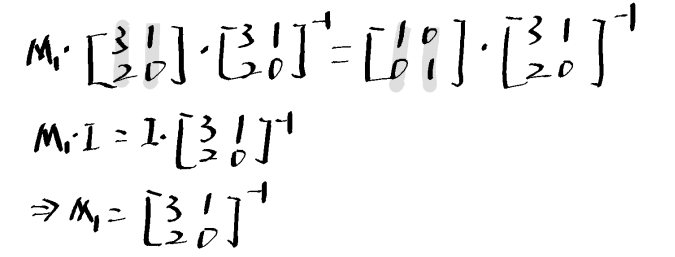 M₁·[3 1; 2 0]·[3 1; 2 0]⁻¹=[1 0; 0 1]·[3 1; 2 0]⁻¹
M₁·I = I·[3 1; 2 0]⁻¹
⇒ M₁ = [3 1; 2 0]⁻¹